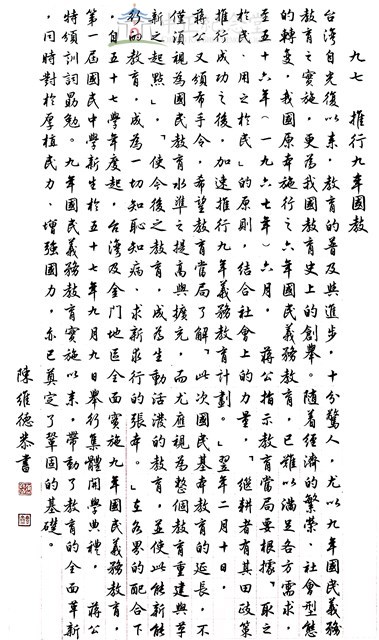 九七 推行九年國教
台灣自光復以來,教育的普及與進步,十分驚人,尤以九年國民義務
教育之實施,更為我國教育史上的創舉。隨着經濟的繁榮、社會型態
的轉變,我國原本施行之六年國民義務教育,已難以滿足各方需求,
至五十六年(一九六七年)六月,蔣公指示教育當局要根據「取之
於民、用之於民」的原則,結合社會上的力量,「繼耕者有其田政策
推行成功之後,加速推行九年義務教育計劃。」翌年二月十日,
蔣公又頒布手令,希望教育當局了解「此次國民基本教育的延長,不
僅須視為國民教育水準之提高與擴充,而尤應視為整個教育重建與革
新之起點」,「使今後之教育,成為生動活潑的教育,並使此能新能
行的教育,成為一切知恥知病、求新求行的張本。」在各界的配合下
,自五十七學年度起,台灣及金門地區全面實施九年國民義務教育,
第一屆國民中學新生於五十七年九月九日舉行集體開學典禮,蔣公
特頒訓詞勗勉。九年國民義務教育實施以來,帶動了教育的全面革新
,同時對於厚植民力、增強國力,亦已奠定了鞏固的基礎。
陳維德恭書